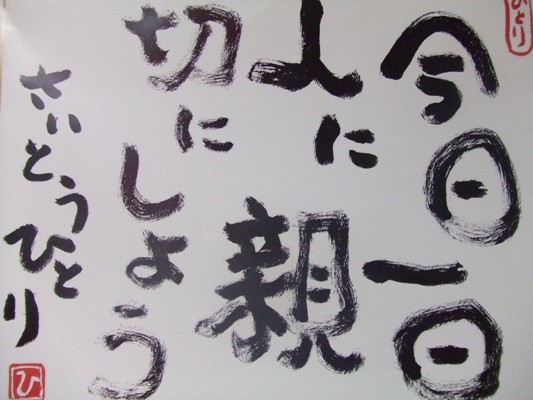 今日一日
人に親
切にしよう
さいとうひとり
ひとり
ひ